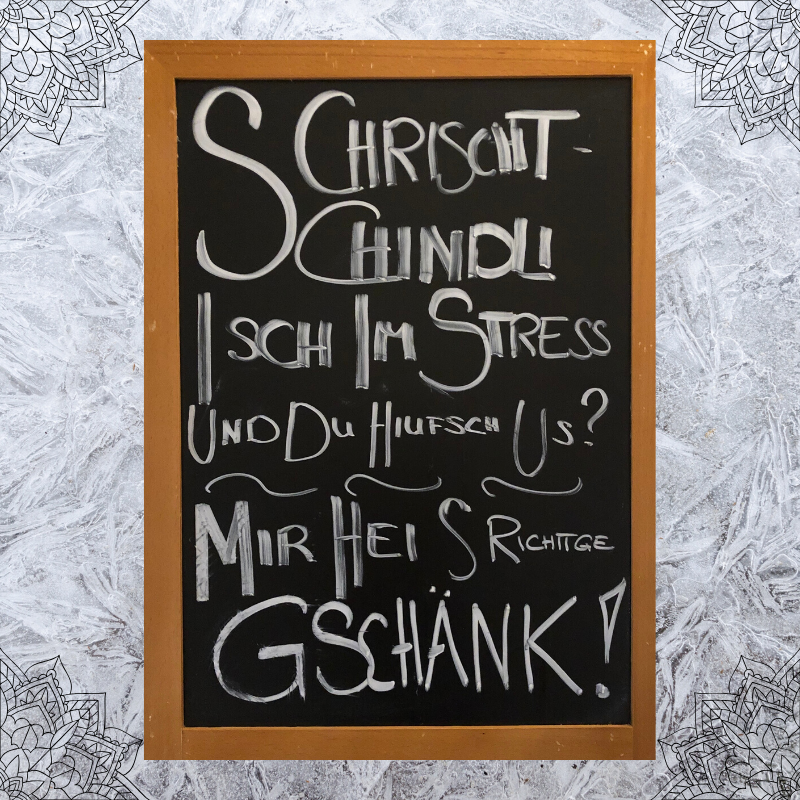 S CHRISCHT-
CHINDLI
ISCH IM STRESS
UND DU HIUFSCH US?
MIR HEI S RICHTIGE
GSCHÄNK!